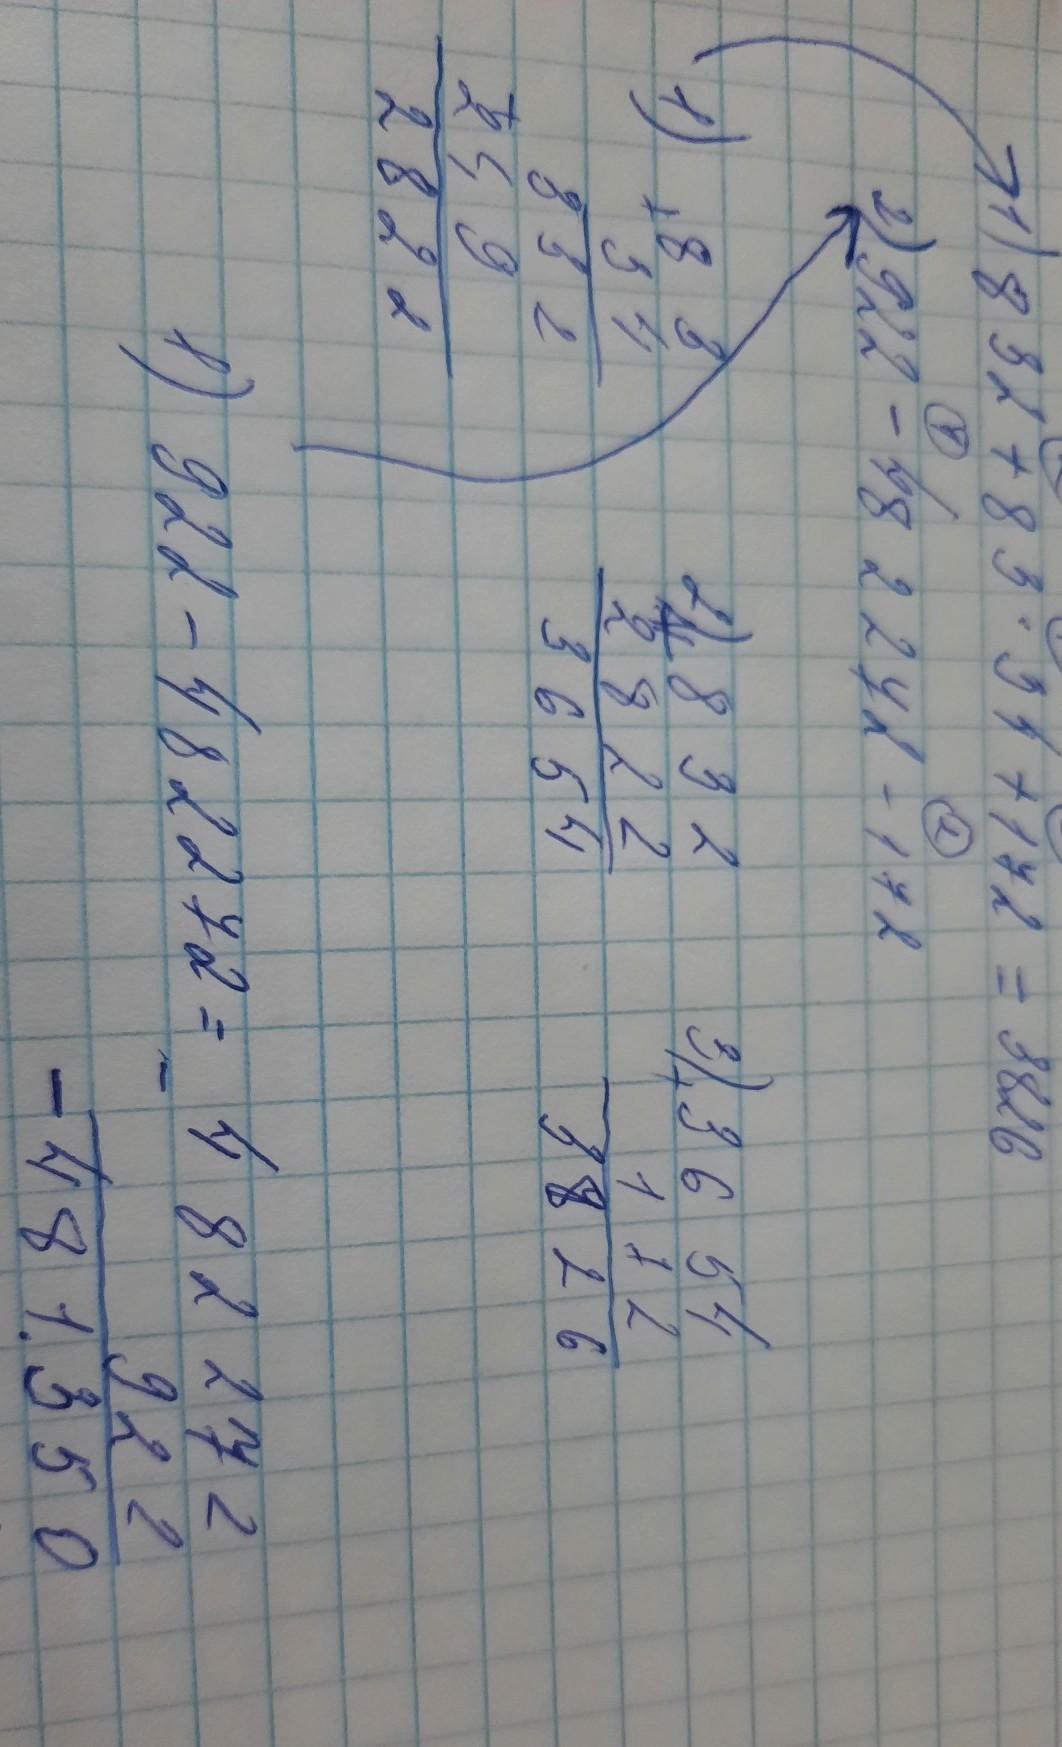 1) 832 + 83 · 34 + 172 = 3826
2) 922 - 482272 - 172
1) + 83
34
332
249
2822
2) + 832
2822
3654
3) + 3654
172
3826
1) 922 - 482272 =
- 482272
922
- 481.350